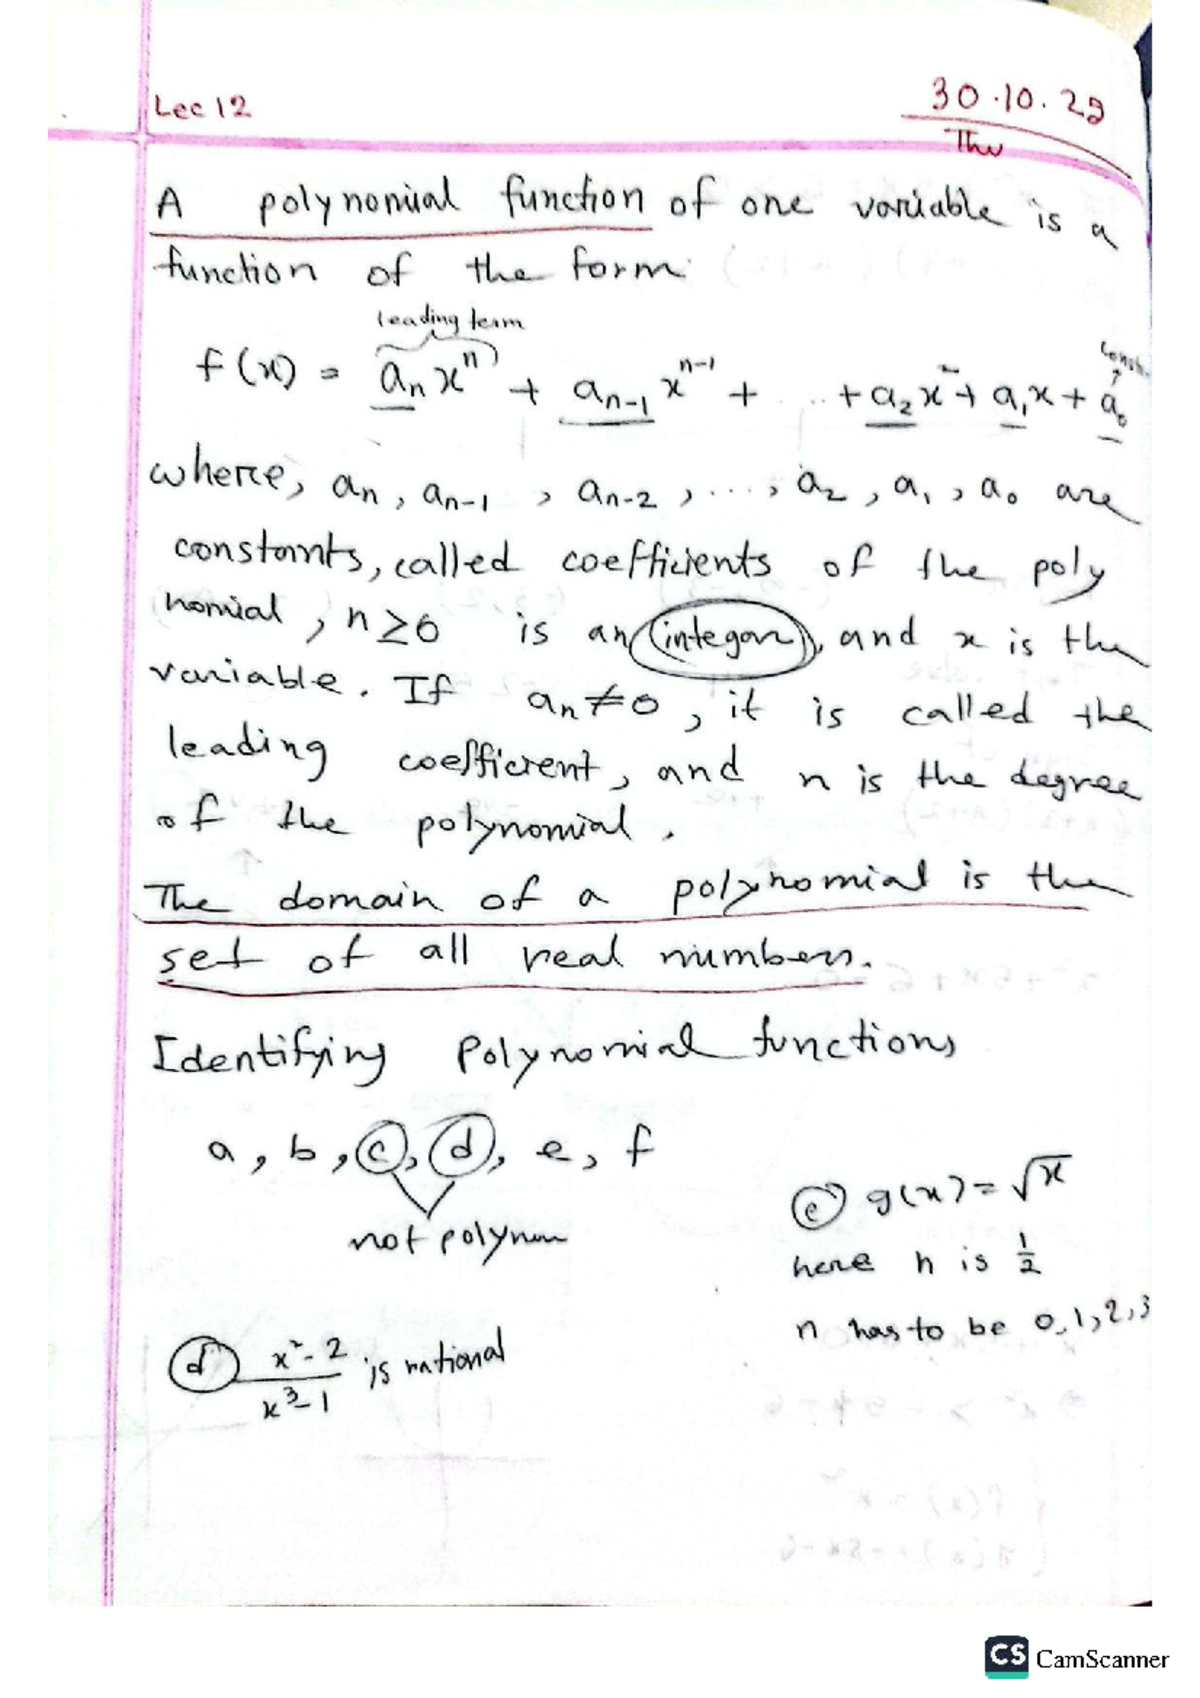 Lec 12
30.10.23
Thu
A polynomial function of one variable is a
function of the form
leading term
f(x) = aₙxⁿ + aₙ₋₁xⁿ⁻¹ + ... + a₂x² + a₁x + a₀
where, aₙ, aₙ₋₁, aₙ₋₂, ..., a₂, a₁, a₀ are
constants, called coefficients of the poly
nomial, n≥0 is an integar, and x is the
variable. If aₙ≠0, it is called the
leading coefficient, and n is the degree
of the polynomial.
The domain of a polynomial is the
set of all real numbers.
Identifying Polynomial functions
a, b, c, d, e, f
not polynom
c g(x) = √x
here n is 1/2
n has to be 0,1,2,3
d (x²-2)/(x³-1) is rational
CS CamScanner